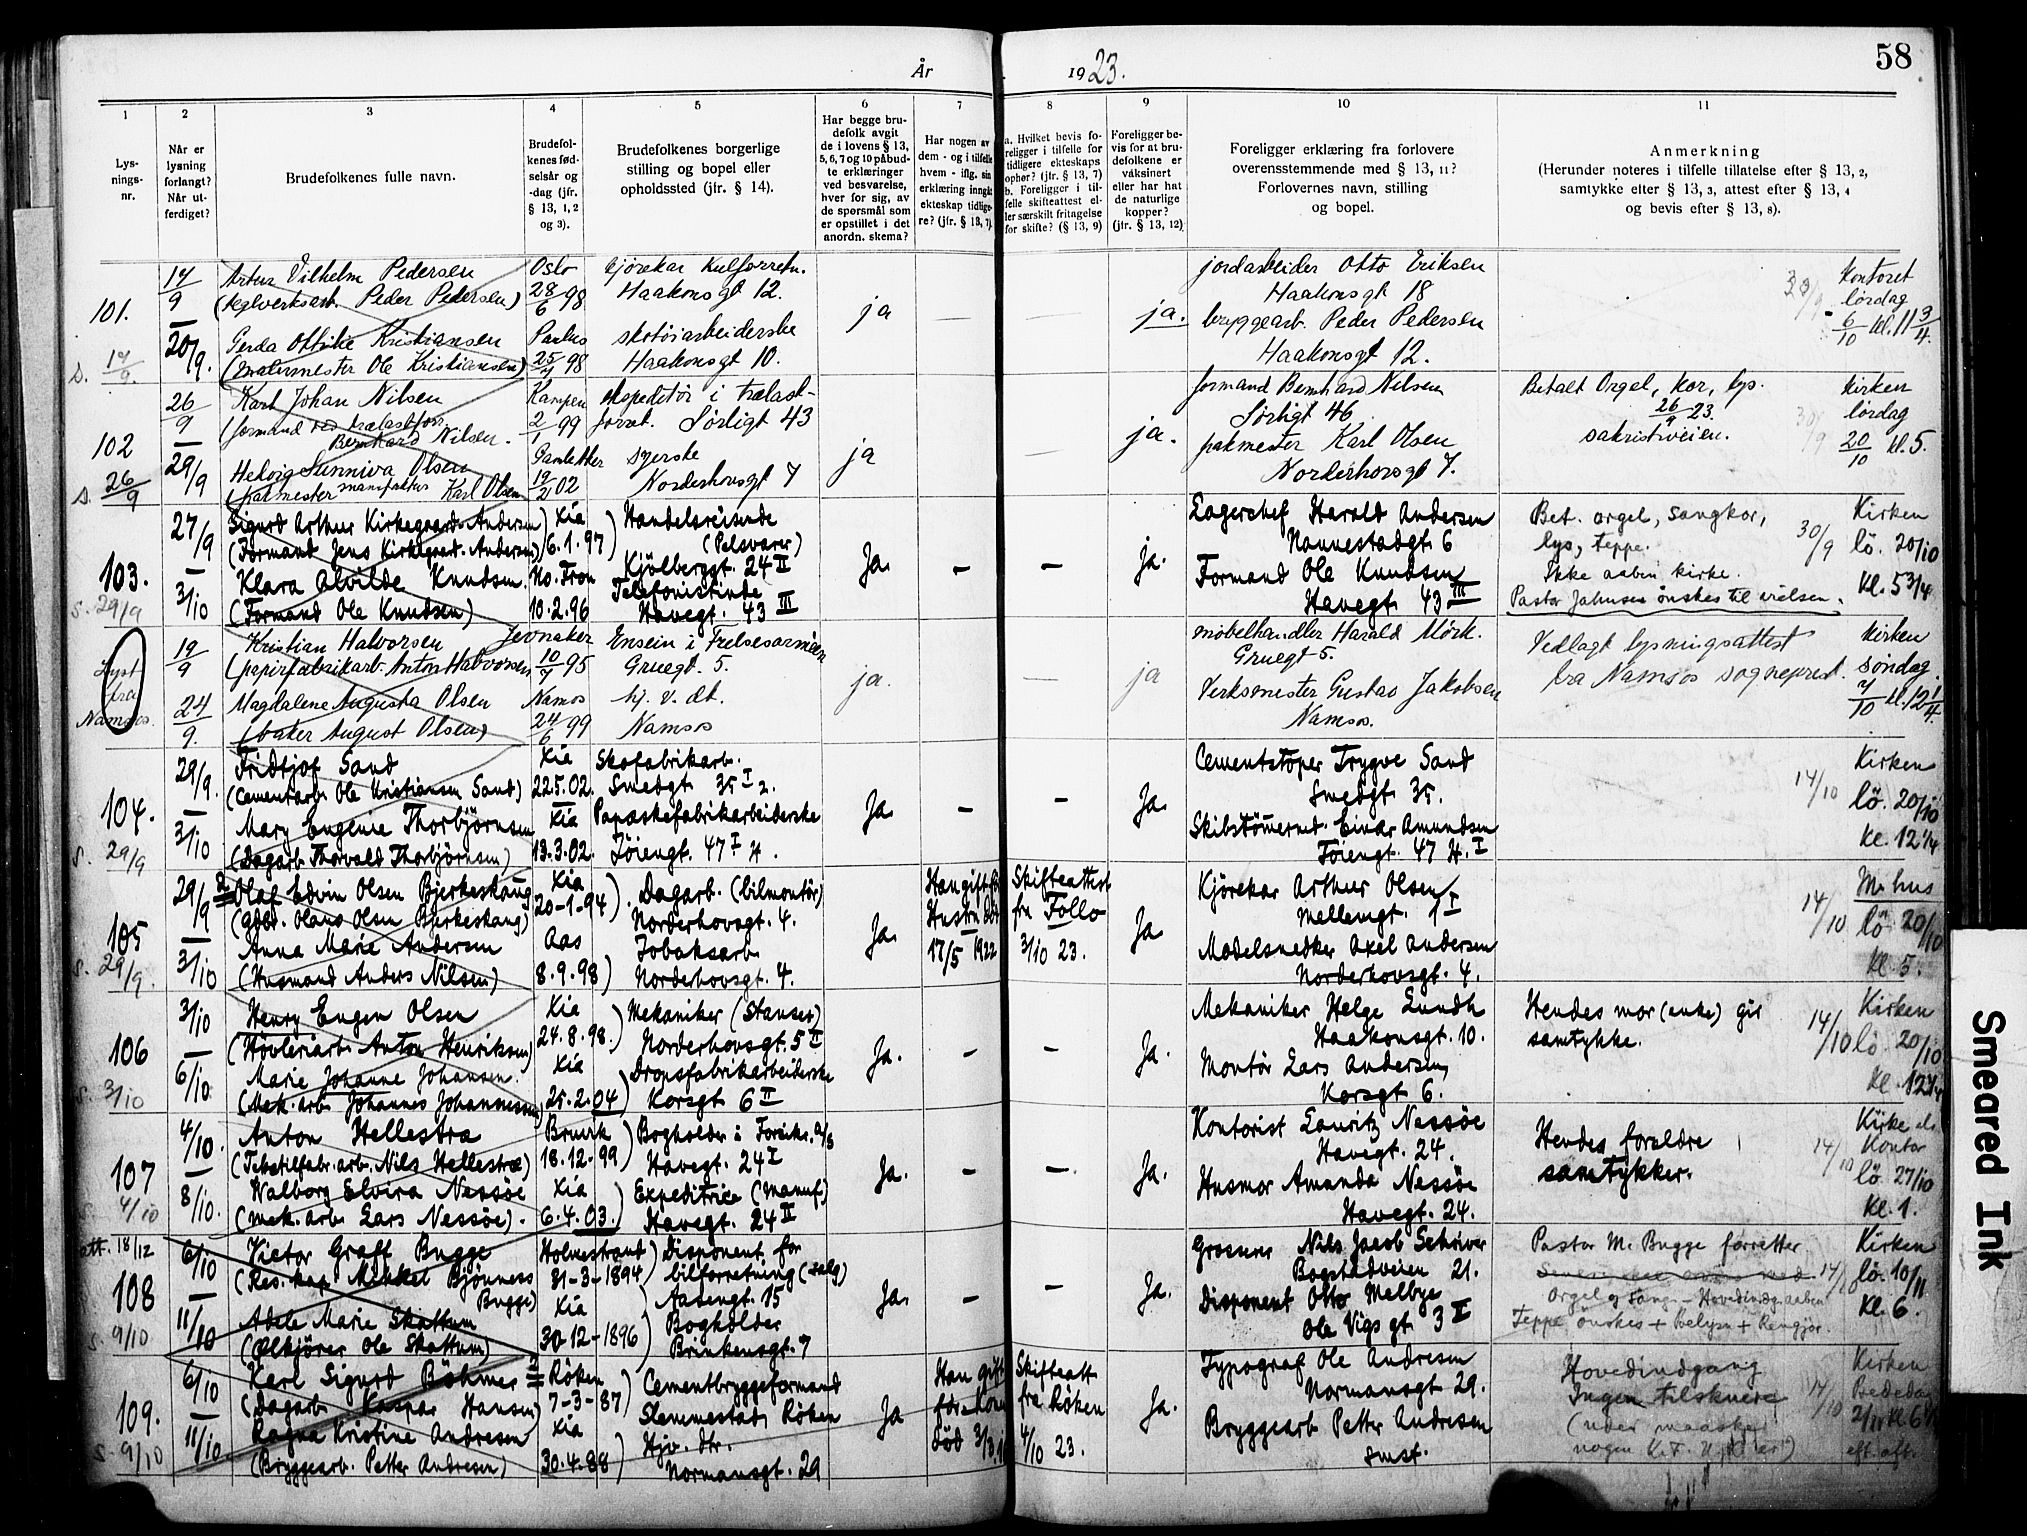 År 1923.
58
1
2
3
4
5
6
7
8
9
10
11
Lys-
nings-
nr.
Når er
lysning
forlangt?
Når ut-
ferdiget?
Brudefolkenes fulle navn.
Brudefol-
kenes fød-
selsår og
-dag (jfr.
§ 13, 1, 2
og 3).
Brudefolkenes borgerlige
stilling og bopel eller
opholdssted (jfr. § 14).
Har begge bru-
defolk avgit
de i lovens § 13,
5, 6, 7 og 10 påbud-
te erklæringer
ved besvarelse,
hver for sig, av
de spørsmål som
er opstillet i det
anordn. skema?
Har nogen av
dem - og i tilfelle
hvem - iflg. sin
erklæring inngått
ekteskap tidlige-
re? (jfr. § 13, 7)
a. Hvilket bevis fo-
religger i tilfelle for
tidligere ekteskaps
ophør? (jfr. § 13, 7)
b. Foreligger i til-
felle skifteattest el-
ler særskilt fritagelse
for skifte? (§ 13, 9)
Foreligger be-
vis for at bru-
defolkene er
vaksinert
eller har hat
de naturlige
kopper?
(jfr. § 13, 12)
Foreligger erklæring fra forlovere
overensstemmende med § 13, 11?
Forlovernes navn, stilling
og bopel.
Anmerkning
(Herunder noteres i tilfelle tillatelse efter § 13, 2,
samtykke efter § 13, 3, attest efter § 13, 4
og bevis efter § 13, 8).
101.
17/9
20/9.
s. 17/9.
Artur Vilhelm Pedersen
(teglverksarb. Peder Pedersen)
Gerda Ottilie Kristiansen
(malermester Ole Kristiansen)
Oslo
28/6 98
Paulus
98
kjørekar Kulforretn.
Haakonsgt 12.
skotøiarbeiderske
Haakonsgt 10.
ja
—
ja.
jordarbeider Otto Eriksen
Haakonsgt 18
bryggearb. Peder Pedersen
Haakonsgt 12.
Kontoret
lørdag
6/10 kl. 11 3/4.
102
26/9
29/9
s. 26/9
Karl Johan Nilsen
(formand ved trælastforr.
Bernhard Nilsen.
Hedvig Sunniva Olsen
(pakmester manufaktur Karl Olsen
Kampen
2/1 99
02
ekspeditør i trælast-
forret. Sørligt 43
syerske
Norderhovsgt 7
ja
—
ja.
formand Bernhard Nilsen
Sørligt 46
pakmester Karl Olsen
Norderhovsgt 7.
Betalt Orgel, kor, lys.
26/9 23.
sakristiveien.
30/9
Kirken
lørdag
20/10 kl. 5.
103.
27/9
3/10
s. 29/9
Sigurd Arthur Kirkegaard-Andersen
(Formand Jens Kirkegaard-Andersen)
Klara Alvilde Knudsen.
(Formand Ole Knudsen)
Kia
6.1.97
No. Fron
10.2.96
Handelsreisende
(Pelsvarer)
Kjölberggt. 24 II
Telefonistinde
Havegt. 43 III
Ja.
—
—
ja.
Lagerchef Harald Andersen
Nannestadgt. 6
Formand Ole Knudsen
Havegt. 43 III
Bet. orgel, sangkor,
lys, teppe.
Ikke aaben kirke.
Pastor Johnsen önskes til vielsen.
30/9
Kirken
lö. 20/10
kl. 5 3/4
Lyst
fra
Namsos.
19/9
24/9.
Kristian Halvorsen
(papirfabrikarb. Anton Halvorsen
Magdalene Augusta Olsen
(baker August Olsen)
Jevnaker
95
Namsos
24/6 99
Ensein i Frelsesarmeen
Gruegt. 5.
hj. v. dt.
Namsos
ja.
—
ja
møbelhandler Harald Mörk.
Gruegt 5.
Verksmester Gustav Jakobsen
Namsos.
Vedlagt lysningsattest
fra Namsos sogneprest.
Kirken
søndag
7/10 kl. 12 1/4.
104.
29/9.
3/10
s. 29/9
Fridtjof Sand
(Cementarb. Ole Kristiansen Sand)
Mary Eugenie Thorbjørnsen
(Dagarb. Thorvald Thorbjörnsen)
Kia
22.5.02.
Kia
13.3.02.
Skofabrikarb.
Smedgt. 35 I
Papæskefabrikarbeiderske
Töiengt. 47 I H.
Ja.
—
—
Ja.
Cementstöper Trygve Sand
Smedgt. 35.
Skibstömmermd. Einar Amundsen
Töiengt. 47 H. I
14/10
Kirken
lö. 20/10
kl. 12 1/4
105
29/9
3/10
s. 29/9.
Olaf Edvin Olsen Bjerkeskaug
(Gdbr. Olaus Olsen Bjerkeskaug)
Anna Marie Andersen
(Husmand Anders Nilsen)
Kia
20-1-94
Aas
8.9.98
Dagarb. (bilmontör)
Norderhovsgt. 4.
Tobaksarb.
Norderhovsgt. 4.
Ja.
Han gift för
Hustru död
17/5 1922
Skifteattest
fra Follo
3/10 23.
Ja
Kjörekar Arthur Olsen
Mellemgt. 1 I
Modelsnedker Axel Andersen
Norderhovsgt. 4.
14/10
M. hus
lö. 20/10
kl. 5.
106
3/10
6/10
s. 3/10
Henry Eugen Olsen
(Hövleriarb. Anton Henriksen)
Marie Johanne Johansen.
(Mek. arb. Johannes Johannessen)
Kia
24.8.98.
Kia
25.2.04
Mekaniker (Stanser)
Norderhovsgt. 5 II
Dropsfabrikarbeiderske
Korsgt. 6 II
Ja.
—
—
Ja.
Mekaniker Helge Lundh
Haakonsgt. 10.
Montör Lars Andersen,
Korsgt. 6.
Hendes mor (enke) gir
samtykke.
14/10
Kirken
lö. 20/10
kl. 12 3/4
107
4/10.
8/10.
s. 4/10
Anton Hellestra
(Tekstilfabr. arb. Nils Hellestræ)
Valborg Elvira Nessöe
(Mek. arb. Lars Nessöe).
Bruvik
18.12.99
Kia
6.4.03.
Bogholder i Forsikr. A/S
Havegt. 24 I
Expeditrice (Manuf.)
Havegt. 24 II
Ja.
—
—
Ja.
Kontorist Lauritz Nessöe
Havegt. 24.
Husmor Amanda Nessöe
Havegt. 24.
Hendes forældre
samtykker.
14/10
Kirke el.
Kontor
lö. 27/10
kl. 1.
att. 18/12
108
6/10
11/10
s. 9/10
Victor Graff Bugge
(Res. kap. Mikkel Bjönness
Bugge)
Adele Marie Skattum
(Ölkjörer Ole Skattum)
Holmestrand
31-3-1894
Kia
30-12-1896
Disponent for
bilforretning (salg)
Aasengt. 15
Bogholder
Brinkensgt. 7
Ja.
—
—
Ja.
Grosserer Nils Jacob Schriver
Bogstadveien 21.
Disponent Otto Melbye
Ole Vigs gt. 3 II
Pastor M. Bugge forretter.
Orgel og Sang - Hovedindg. aaben
Teppe önskes + Belysn + Rengjör.
14/10
Kirken
lö. 10/11
kl. 6.
109.
6/10
11/10
s. 9/10
Karl Sigurd Böhmer
(Dagarb. Kaspar Hansen)
Ragna Kristine Andresen
(Bryggearb. Petter Andresen)
Röken
7-3-87
Kia
30.4.88
Cementbryggeformand
Slemmestad, Röken
Hjv. dtr.
Normansgt. 29
Ja
Han gift
för. Kone
död
Skifteatt
fra Röken
4/10 23.
Ja.
Typograf Ole Andresen
Normansgt 29.
Bryggearb Petter Andresen
smst.
Hovedindgang
Ingen tilskuere
(uden maaske
nogen
14/10
Kirken
Bededag
2/11 kl. 6
eft. aft.
Smeared Ink